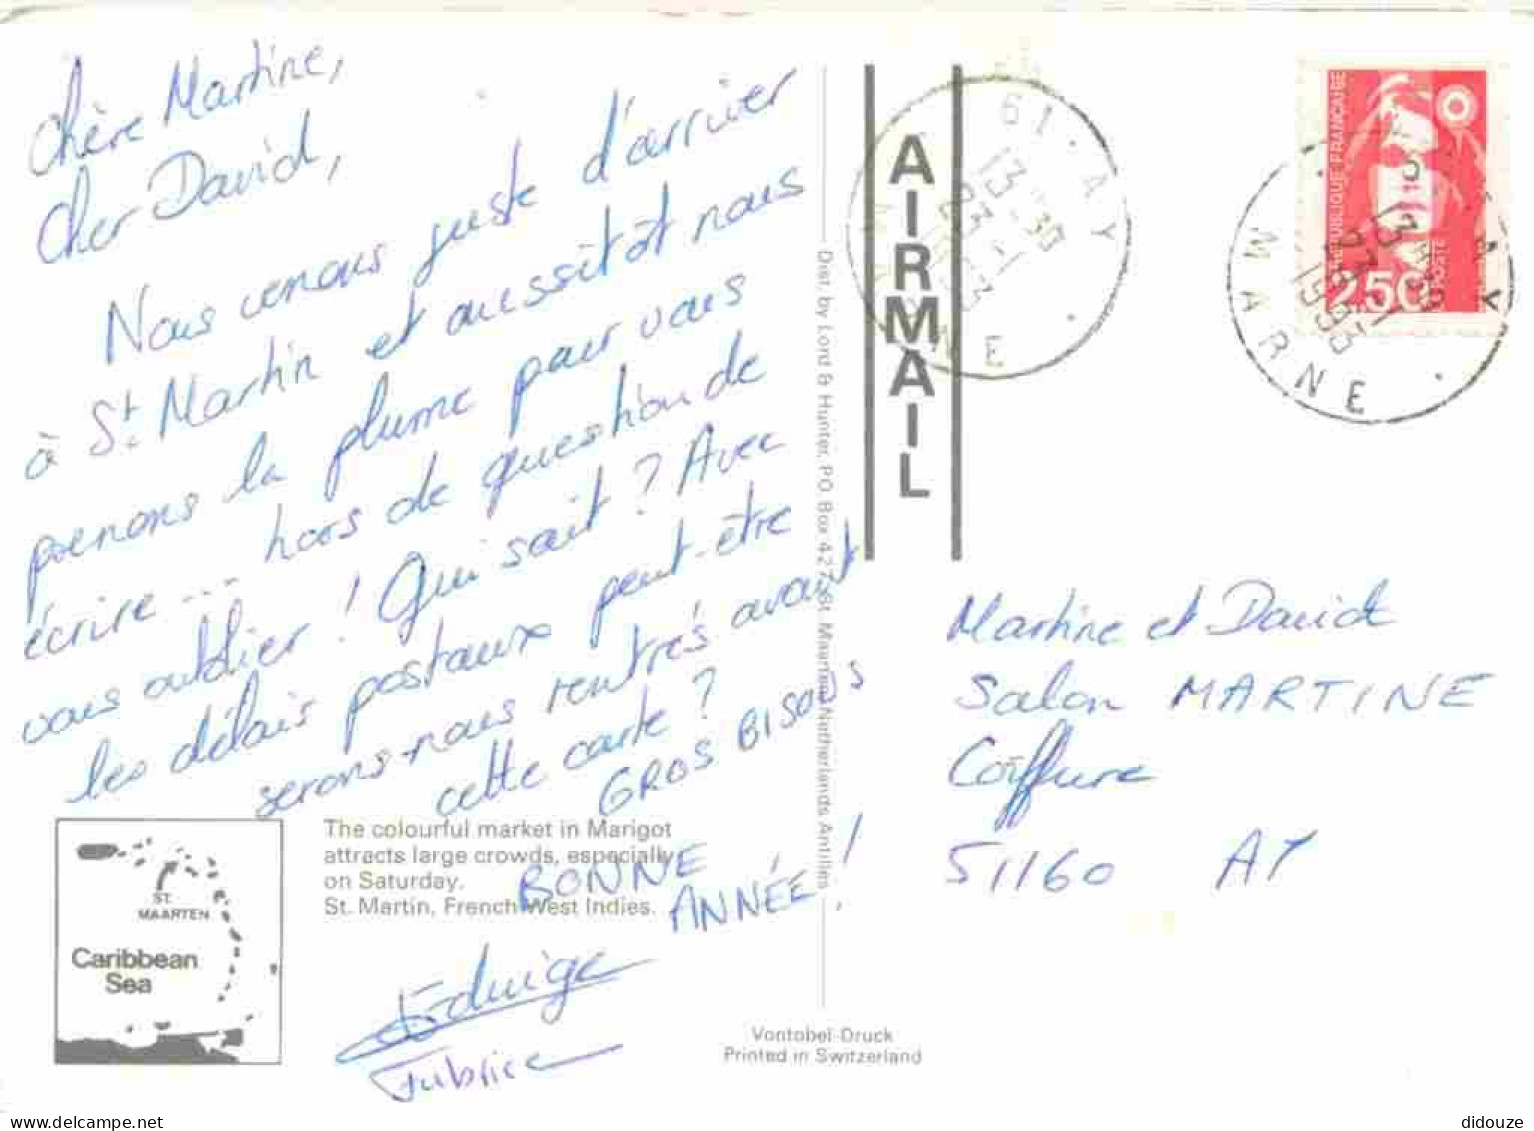 Chère Martine,
Cher David,
Nous venons juste d'arriver
à St. Martin et aussitôt nous
prenons la plume pour vous
écrire... hors de question de
vous oublier ! Qui sait ? Avec
les délais postaux peut-être
serons-nous rentrés avant
cette carte ?
GROS BISOUS
BONNE
ANNÉE !
Edwige
Fabrice
The colourful market in Marigot
attracts large crowds, especially
on Saturday.
St. Martin, French West Indies.
ST.
MAARTEN
Caribbean
Sea
Dist. by Lord & Hunter, PO Box 427, St. Maarten Netherlands Antilles
Vontobel-Druck
Printed in Switzerland
AIRMAIL
51 · AY
13
23-1
MARNE
RÉPUBLIQUE FRANÇAISE
2,50
POSTE
AY
13
23-1
1993
MARNE
Martine et David
Salon MARTINE
Coiffure
51160 AY
delcampe.net
didouze